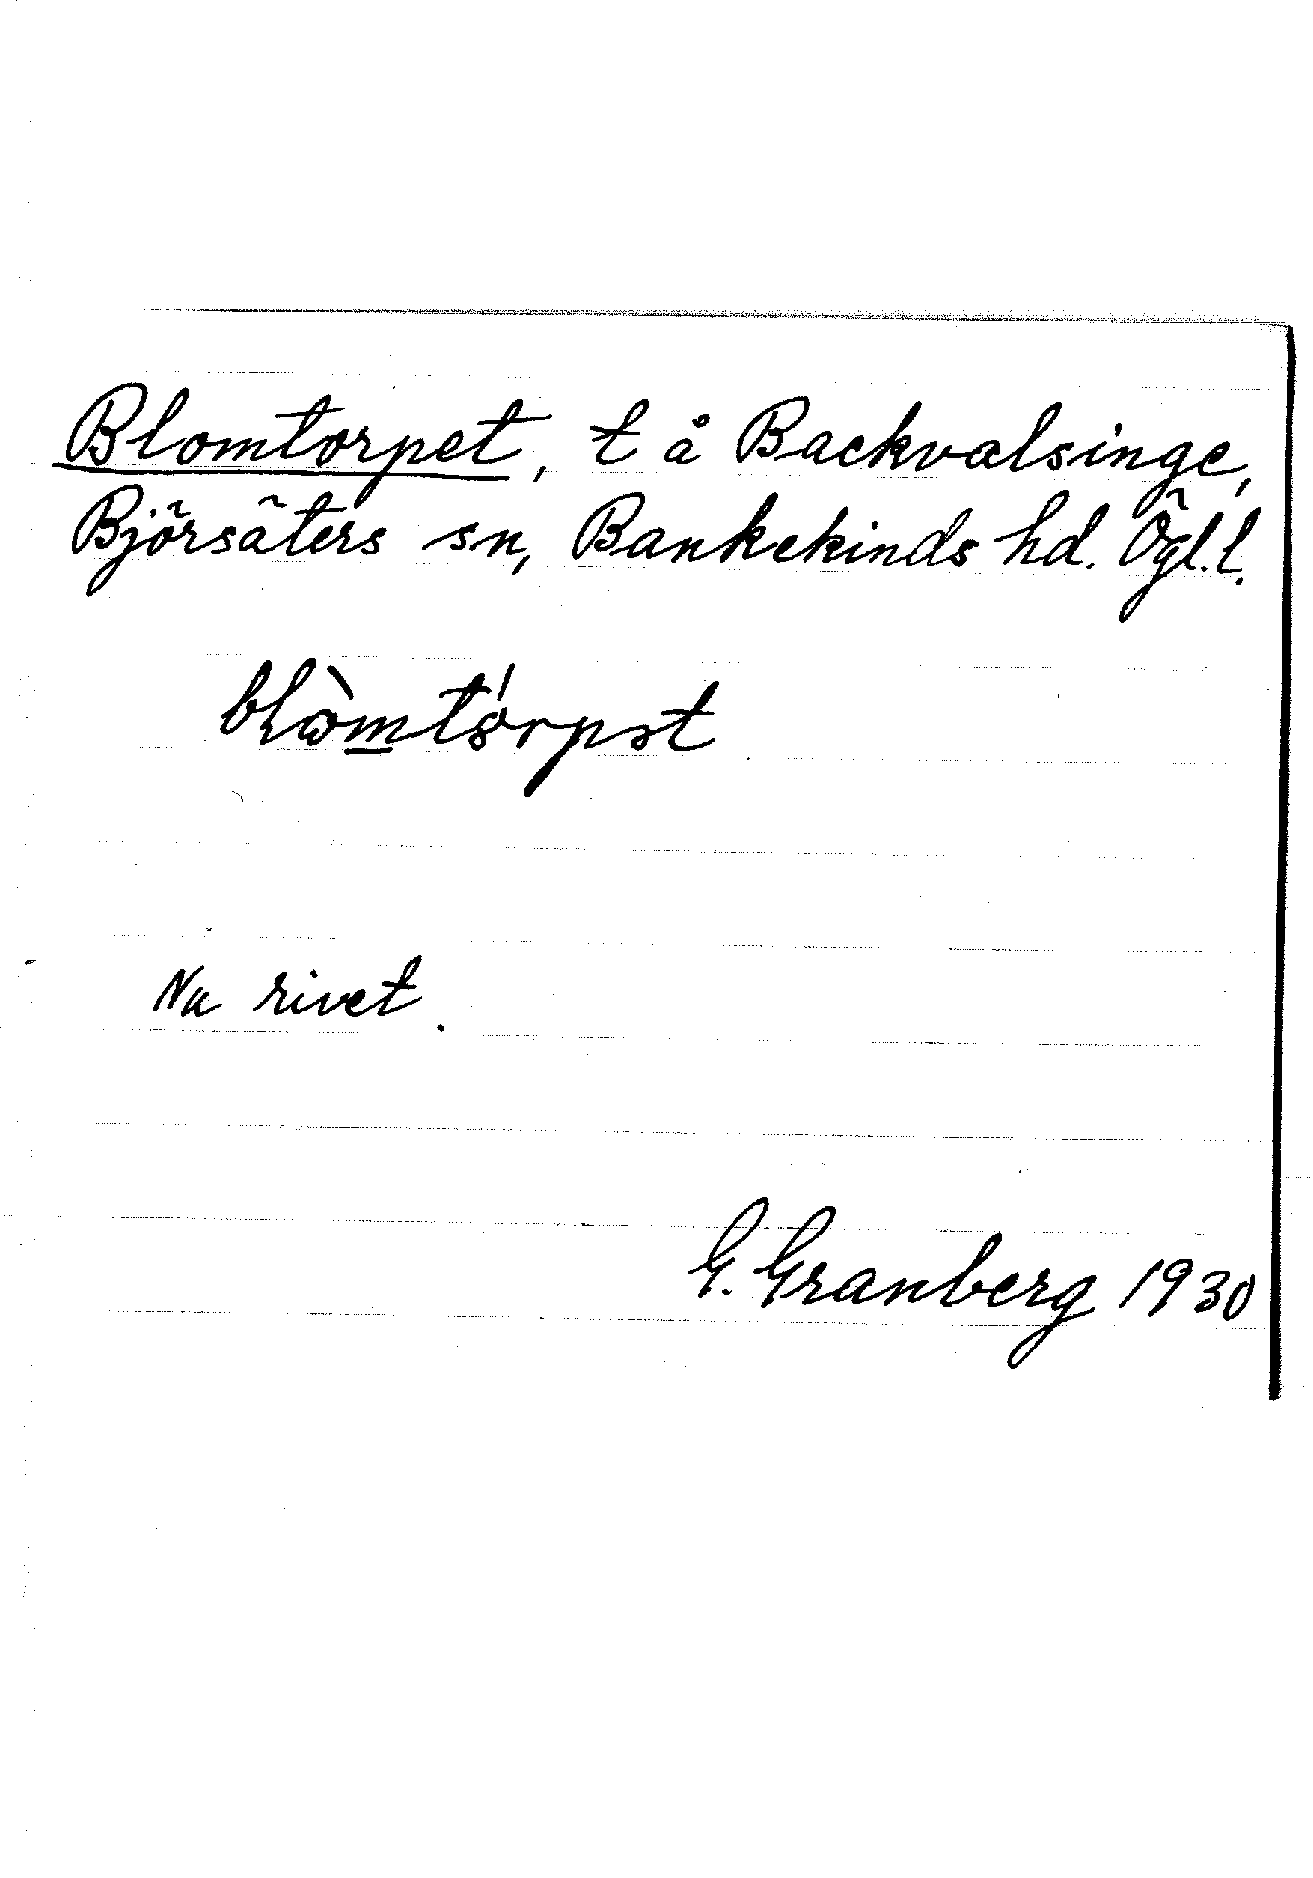 Blomtorpet, t å Backvalsinge,
Björsäters sn, Bankekinds hd. Ögl.l.
Nu rivet.
G. Granberg 1930